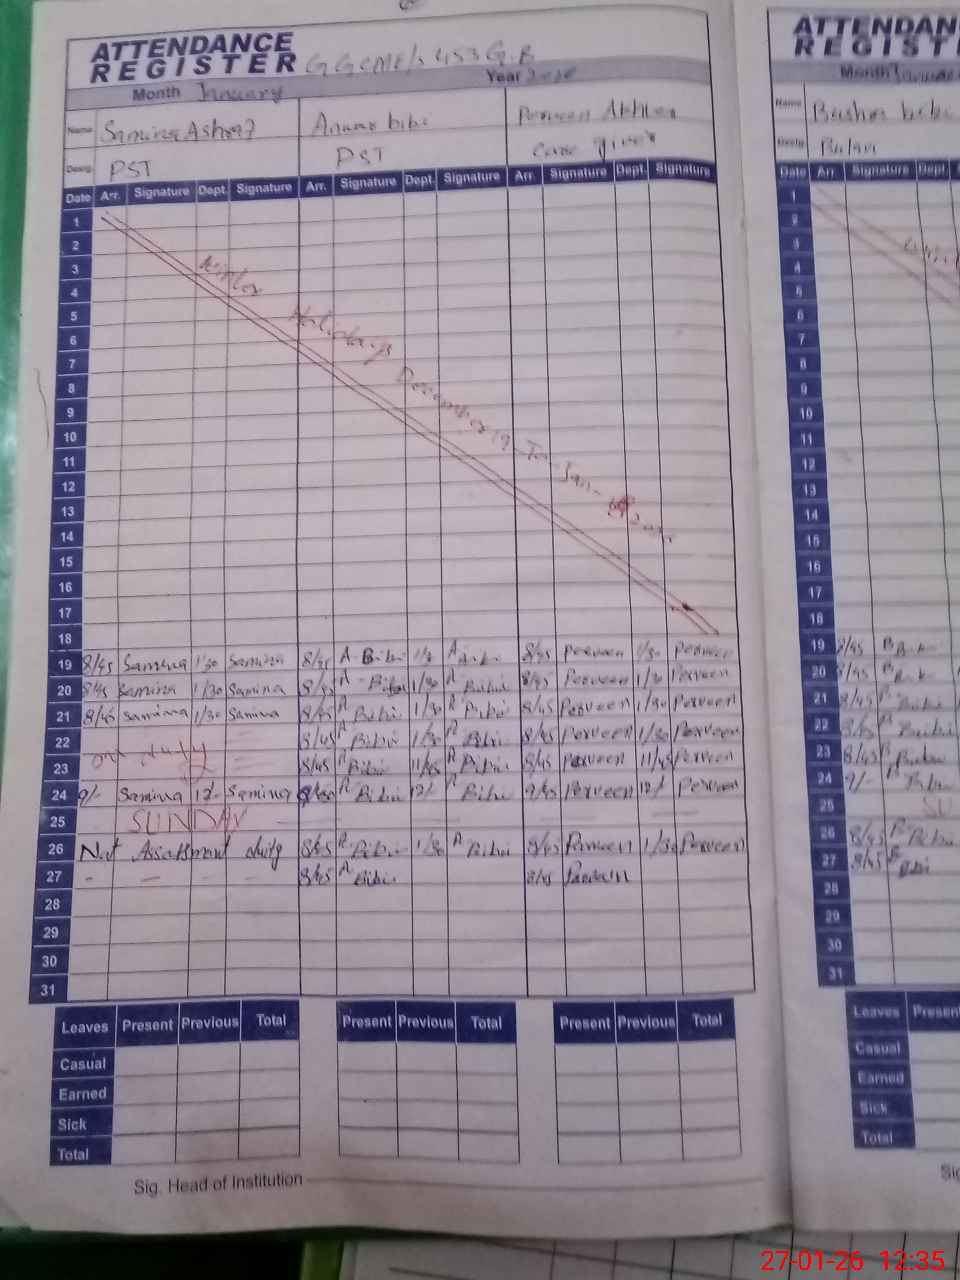 ATTENDANCE
REGISTER 453 G.B
Month January Year
Name Samina Ashraf bibi Perveen Akhter
Desig. PST PST Care giver
Date Arr. Signature Dept. Signature Arr. Signature Dept. Signature Arr. Signature Dept. Signature
1
2
3
4
5
6
7
8
9
10
11
12
13
14
15
16
17
18
Winter Holidays December 19 To Jan-
19 8/45 Samina 1/30 Samina 8/45 A-Bibi A Bibi 8/45 Perveen 1/30 Perveen
20 8/45 Samina 1/30 Samina 8/45 A-Bibi 1/30 A Bibi 8/45 Perveen 1/30 Perveen
21 8/45 Samina 1/30 Samina 8/45 A Bibi 1/30 A Bibi 8/45 Perveen 1/30 Perveen
22 8/45 A Bibi 1/30 A Bibi 8/45 Perveen 1/30 Perveen
on duty
23 8/45 A Bibi 11/45 A Bibi 8/45 Perveen 11/45 Perveen
24 9/- Samina 12/- Samina A Bibi 12/- A Bibi 9/45 Perveen 12/- Perveen
25 SUNDAY
26 duty 8/45 A Bibi 1/30 A Bibi 8/45 Perveen 1/30 Perveen
27 - - - - 8/45 A Bibi 8/45
28
29
30
31
Leaves Present Previous Total Present Previous Total Present Previous Total
Casual
Earned
Sick
Total
Sig. Head of Institution
ATTENDANCE
REGIST
Month January
Name Bushra bibi
Desig.
Date Arr. Signature Dept.
1
2
3
4
5
6
7
8
9
10
11
12
13
14
15
16
17
18
19 8/45
20 8/45
21 8/45 B Bibi
22 8/45 B Bibi
23 8/45 B Bibi
24 9/- B Bibi
25 SU
26 8/45 B Bibi
27 8/45 B Bibi
28
29
30
31
Leaves Present
Casual
Earned
Sick
Total
27-01-26 12:35